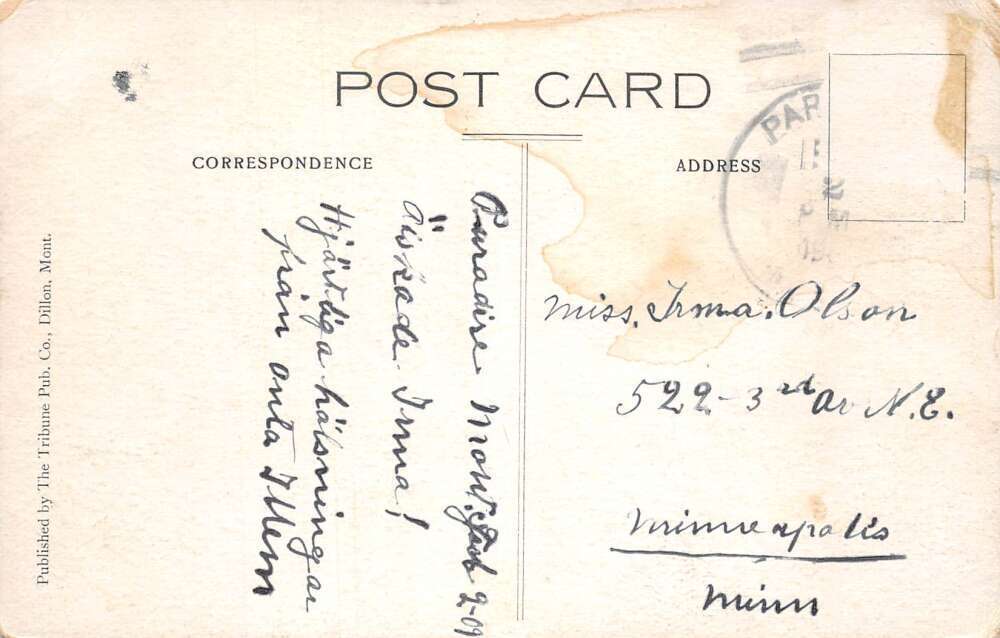 POST CARD
CORRESPONDENCE
ADDRESS
PAR
Paradise Mont. Feb 2-09
Älskade Irma!
Hjärtliga hälsningar
från onta
Miss. Irma. Olson
522-3rd Av N.E.
Minneapolis
Minn
Published by The Tribune Pub. Co., Dillon, Mont.